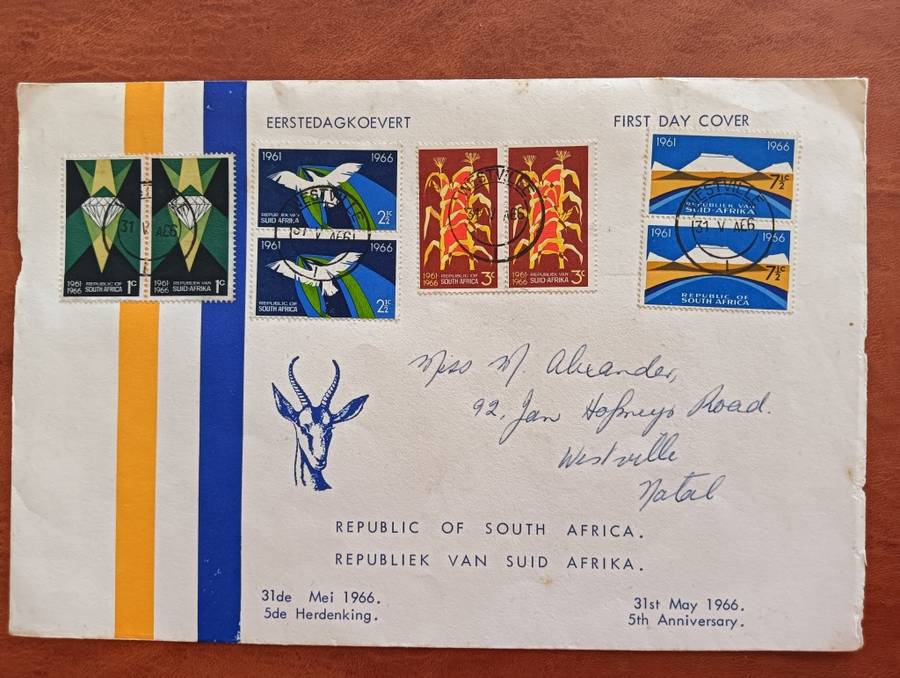 EERSTEDAGKOEVERT
FIRST DAY COVER
1961 1966
REPUBLIC OF
SOUTH AFRICA 1c
1961 1966
REPUBLIEK VAN
SUID-AFRIKA 1c
1961 1966
REPUBLIEK VAN
SUID AFRIKA 2½c
1961 1966
REPUBLIC OF
SOUTH AFRICA 2½c
1961 1966
REPUBLIC OF
SOUTH AFRICA 3c
1961 1966
REPUBLIEK VAN
SUID-AFRIKA 3c
1961 1966
7½c
REPUBLIEK VAN
SUID-AFRIKA
1961 1966
7½c
REPUBLIC OF
SOUTH AFRICA
31 V
WESTVILLE
31 V
WESTVILLE
31 V
WESTVILLE
31 V
Miss M. Alexander,
92, Jan Hofmeyr Road.
Westville
Natal
REPUBLIC OF SOUTH AFRICA.
REPUBLIEK VAN SUID AFRIKA.
31de Mei 1966.
5de Herdenking.
31st May 1966.
5th Anniversary.